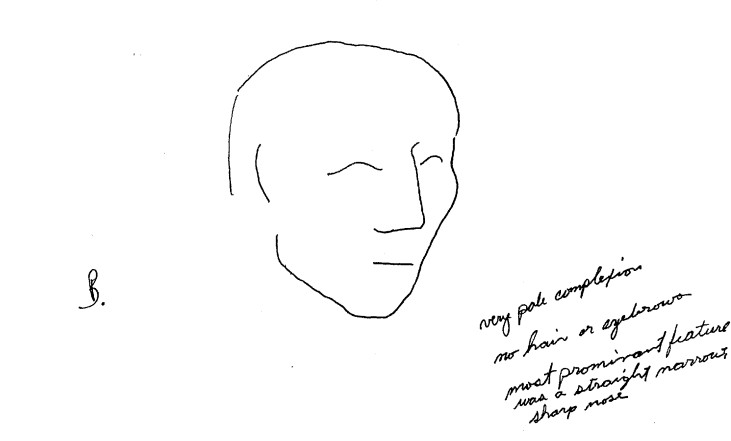 B.
very pale complexion
no hair or eyebrows
most prominant feature
was a straight narrow,
sharp nose